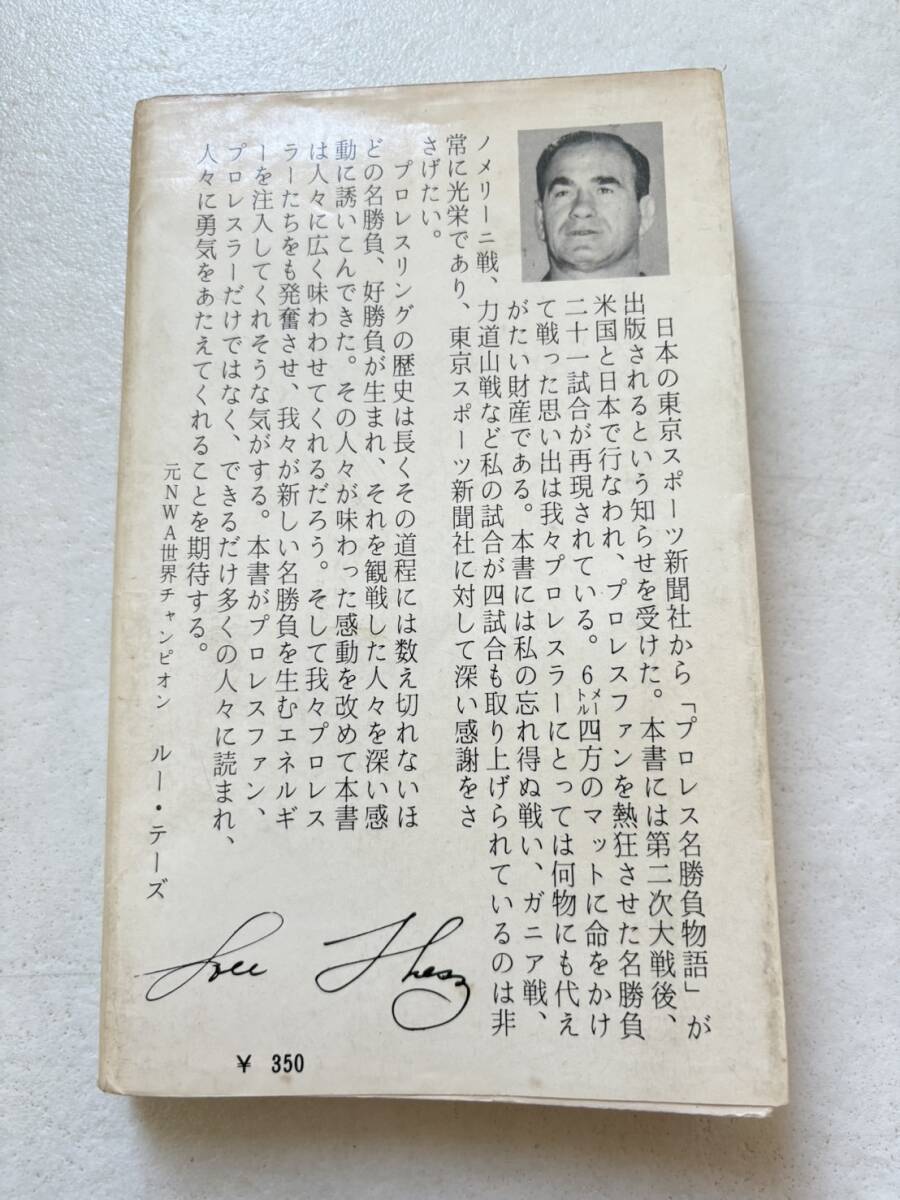 日本の東京スポーツ新聞社から「プロレス名勝負物語」が
出版されるという知らせを受けた。本書には第二次大戦後、
米国と日本で行なわれ、プロレスファンを熱狂させた名勝負
二十一試合が再現されている。6メートル四方のマットに命をかけ
て戦った思い出は我々プロレスラーにとっては何物にも代え
がたい財産である。本書には私の忘れ得ぬ戦い、ガニア戦、
ノメリーニ戦、力道山戦など私の試合が四試合も取り上げられているのは非
常に光栄であり、東京スポーツ新聞社に対して深い感謝をさ
さげたい。
プロレスリングの歴史は長くその道程には数え切れないほ
どの名勝負、好勝負が生まれ、それを観戦した人々を深い感
動に誘いこんできた。その人々が味わった感動を改めて本書
は人々に広く味わわせてくれるだろう。そして我々プロレス
ラーたちをも発奮させ、我々が新しい名勝負を生むエネルギ
ーを注入してくれそうな気がする。本書がプロレスファン、
プロレスラーだけではなく、できるだけ多くの人々に読まれ、
人々に勇気をあたえてくれることを期待する。
元NWA世界チャンピオン ルー・テーズ
Lou Thesz
¥ 350